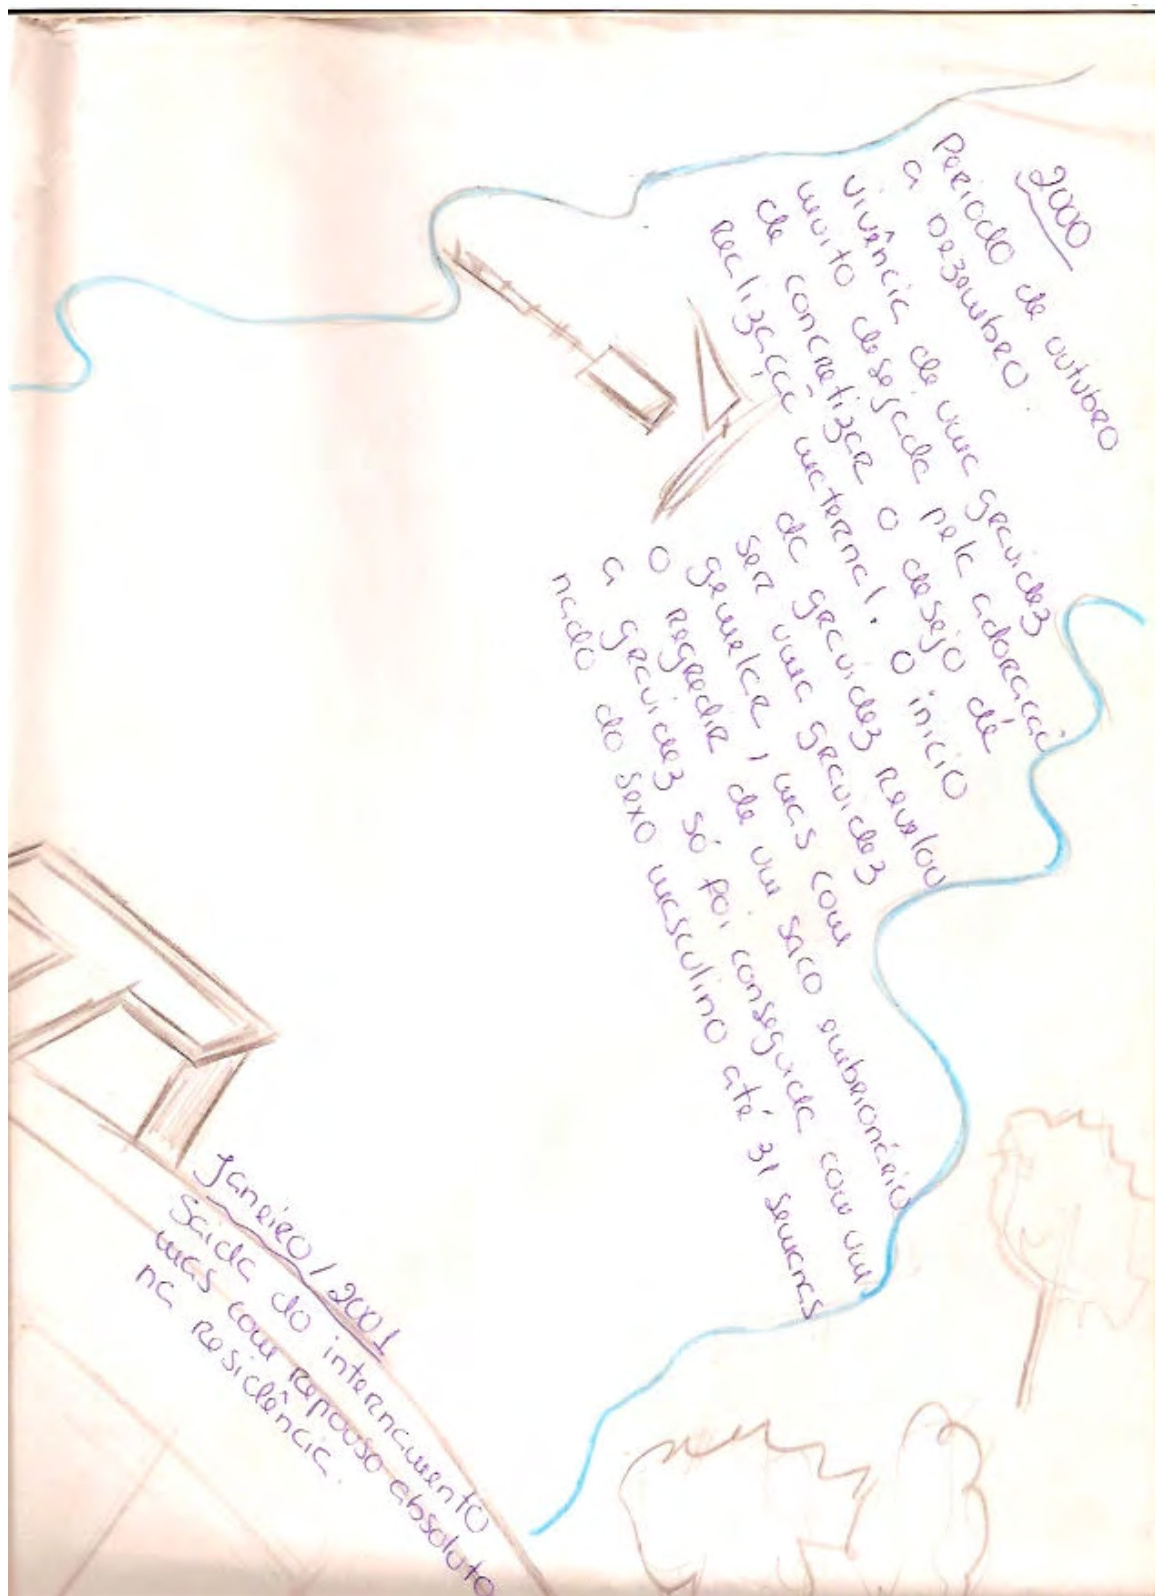 2000
Período de outubro
a Dezembro.
vivência de uma gravidez
muito desejada pela adoração
de concretizar o desejo de
realização maternal. O início
da gravidez revelou
ser uma gravidez
gemelar, mas com
o regredir de um saco embrionário
a gravidez só foi conseguida com um
nado do sexo masculino até 31 semanas
Janeiro/2001
Saida do internamento
mas com repouso absoluto
na residência.